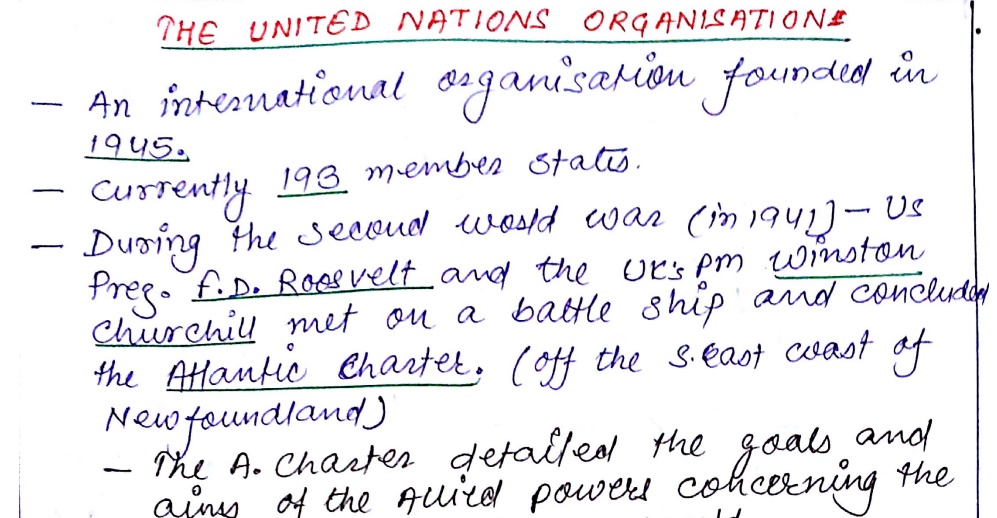 THE UNITED NATIONS ORGANISATION
— An international organisation founded in
1945.
— Currently 193 member states.
— During the second world war (in 1941) — US
Prez. F.D. Roosvelt and the UK's PM Winston
Churchill met on a battle ship and concluded
the Atlantic Charter. (off the S. East coast of
Newfoundland)
— The A. Charter detailed the goals and
aims of the Allied powers concerning the